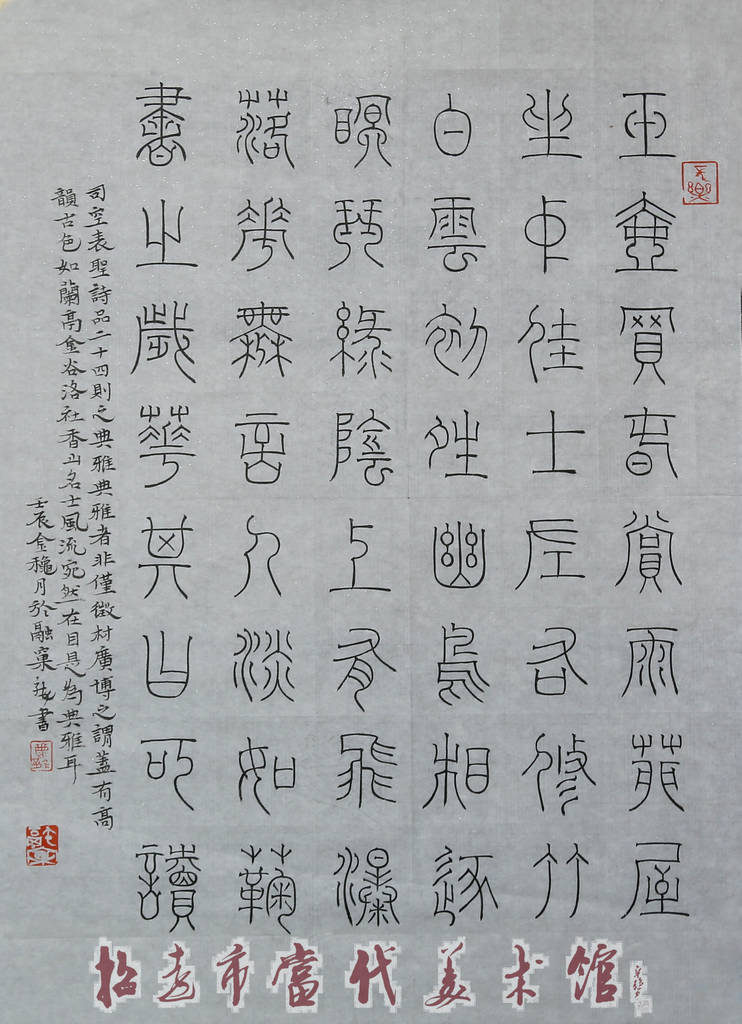 玉壺買春賞雨茆屋
坐中佳士左右修竹
白雲初晴幽鳥相逐
眠琴綠陰上有飛瀑
落花無言人淡如鞠
書之歲華其曰可讀
司空表聖詩品二十四則之典雅典雅者非僅徵材廣博之謂蓋有高
韻古色如蘭高金谷洛社香山名士風流宛然在目是為典雅耳
壬辰金穐月於融藁龍書
招遠市當代美术馆